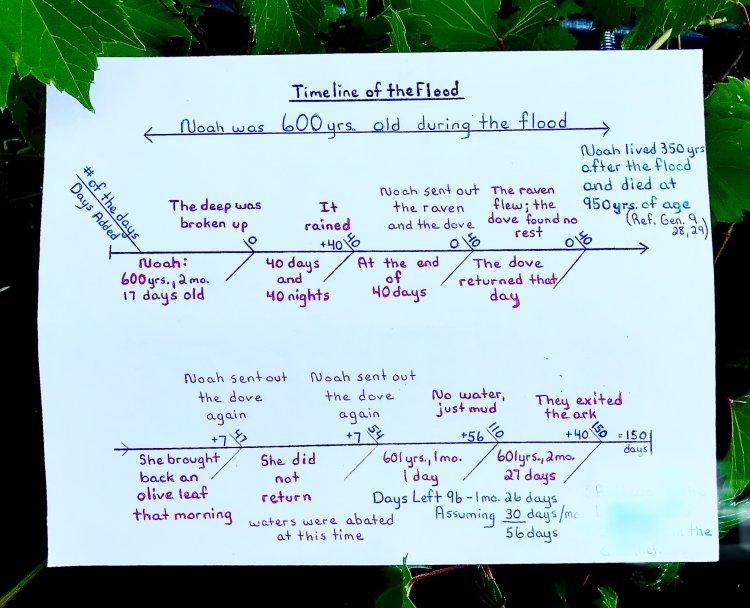 Timeline of the Flood
Noah was 600 yrs. old during the flood
Noah lived 350 yrs
after the flood
and died at
950 yrs. of age
(Ref. Gen. 9
28, 29)
# of the days
Days Added
The deep was
broken up
0
It
rained
+40 40
Noah sent out
the raven
and the dove
0 40
The raven
flew; the
dove found no
rest
0 40
Noah:
600 yrs., 2 mo.
17 days old
40 days
and
40 nights
At the end
of
40 days
The dove
returned that
day
Noah sent out
the dove
again
+7 47
Noah sent out
the dove
again
+7 54
No water,
just mud
+56 110
They exited
the ark
+40 150
=150
days
She brought
back an
olive leaf
that morning
She did
not
return
waters were abated
at this time
601 yrs., 1 mo.
1 day
601 yrs., 2 mo.
27 days
Days Left 96 - 1 mo. 26 days
Assuming 30 days/mo
56 days
the